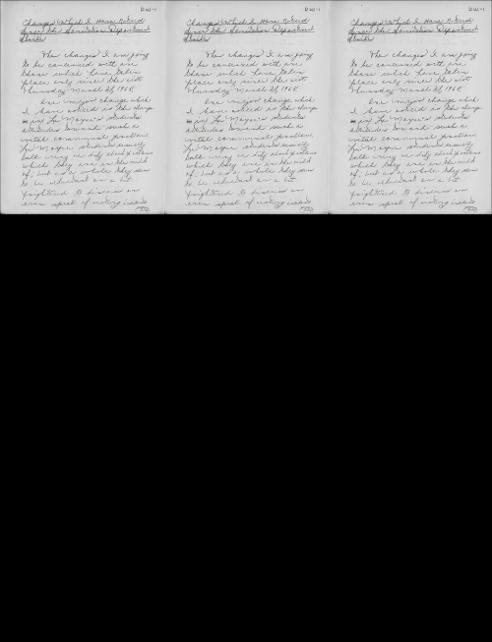 Changes Which I Have Noticed
Since the Sanitation Department
Strike
The changes I am going
to be concerned with are
those which have taken
place only since the riot
Thursday March 28, 1968.
One major change which
I have noticed is the change
in students
attitudes toward such a
vital communal problem
students usually
talk very readily about
which they are in the midst
of; but as a whole they seem
to be reluctant or a bit
frightened to discuss or
even speak of rioting
Changes Which I Have Noticed
Since the Sanitation Department
Strike
The changes I am going
to be concerned with are
those which have taken
place only since the riot
Thursday March 28, 1968.
One major change which
I have noticed is the change
in students
attitudes toward such a
vital communal problem
students usually
talk very readily about
which they are in the midst
of; but as a whole they seem
to be reluctant or a bit
frightened to discuss or
even speak of rioting
Changes Which I Have Noticed
Since the Sanitation Department
Strike
The changes I am going
to be concerned with are
those which have taken
place only since the riot
Thursday March 28, 1968.
One major change which
I have noticed is the change
in students
attitudes toward such a
vital communal problem
students usually
talk very readily about
which they are in the midst
of; but as a whole they seem
to be reluctant or a bit
frightened to discuss or
even speak of rioting